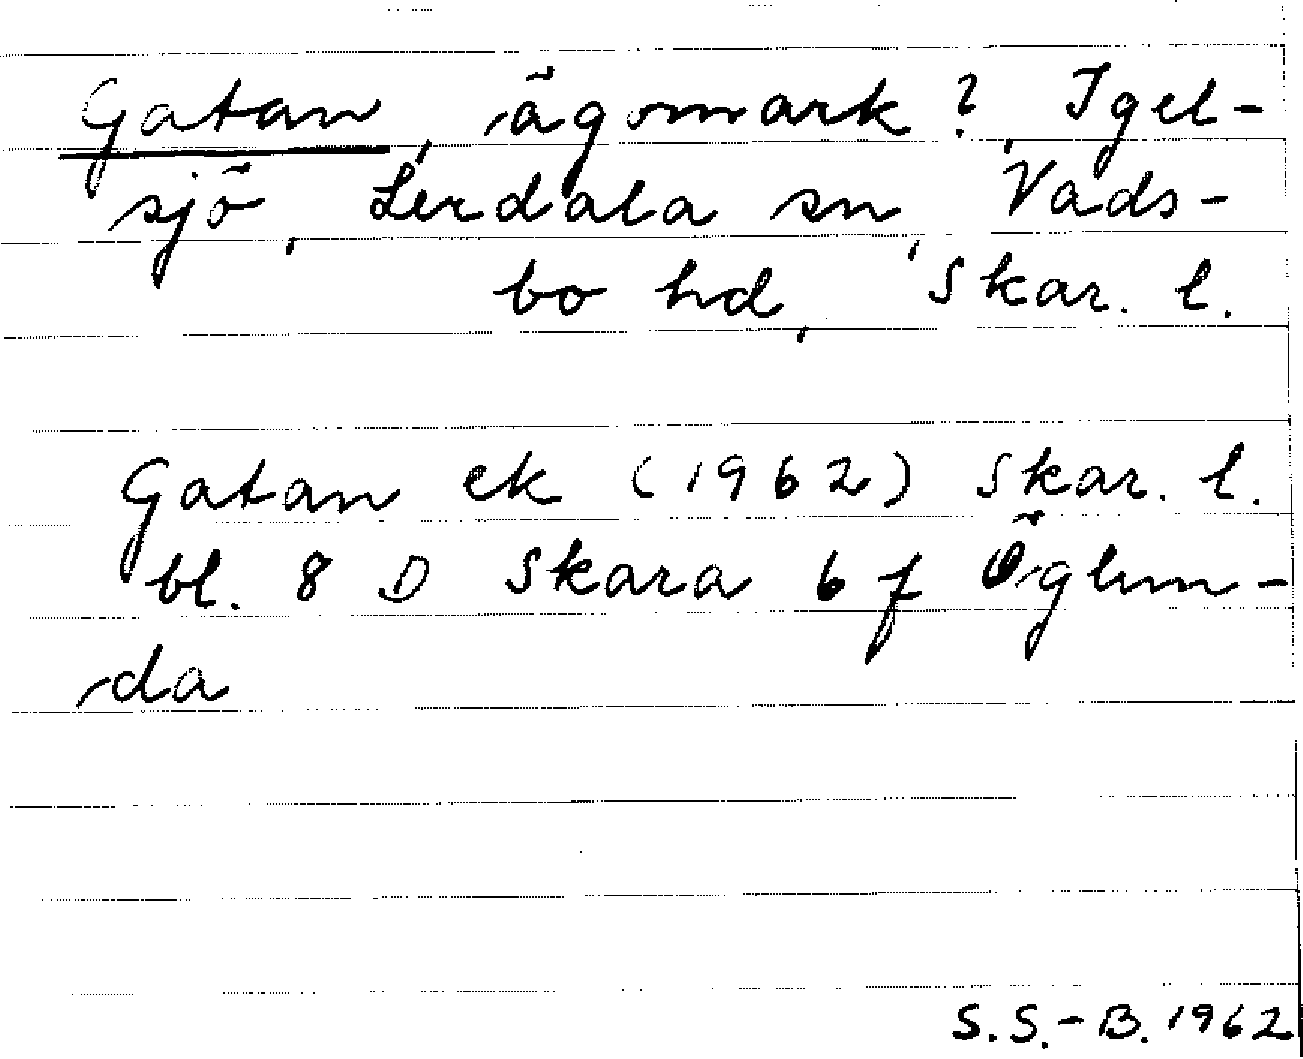 Gatan, ägomark? Igel-
sjö, Lerdala sn, Vads-
bo hd, Skar. l.
Gatan ek (1962) Skar. l.
bl. 8 D Skara 6 f Öglun-
da
S.S.-B. 1962